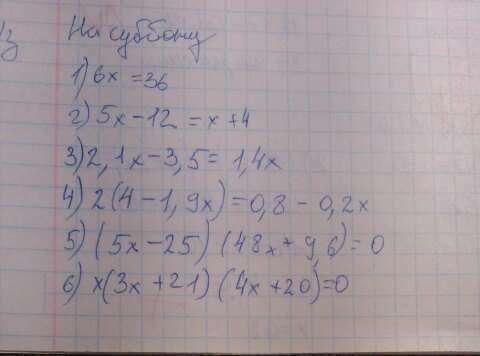 На субботу
1) 6x = 36
2) 5x - 12 = x + 4
3) 2,1x - 3,5 = 1,4x
4) 2(4 - 1,9x) = 0,8 - 0,2x
5) (5x - 25) (48x + 9,6) = 0
6) x(3x + 21) (4x + 20) = 0